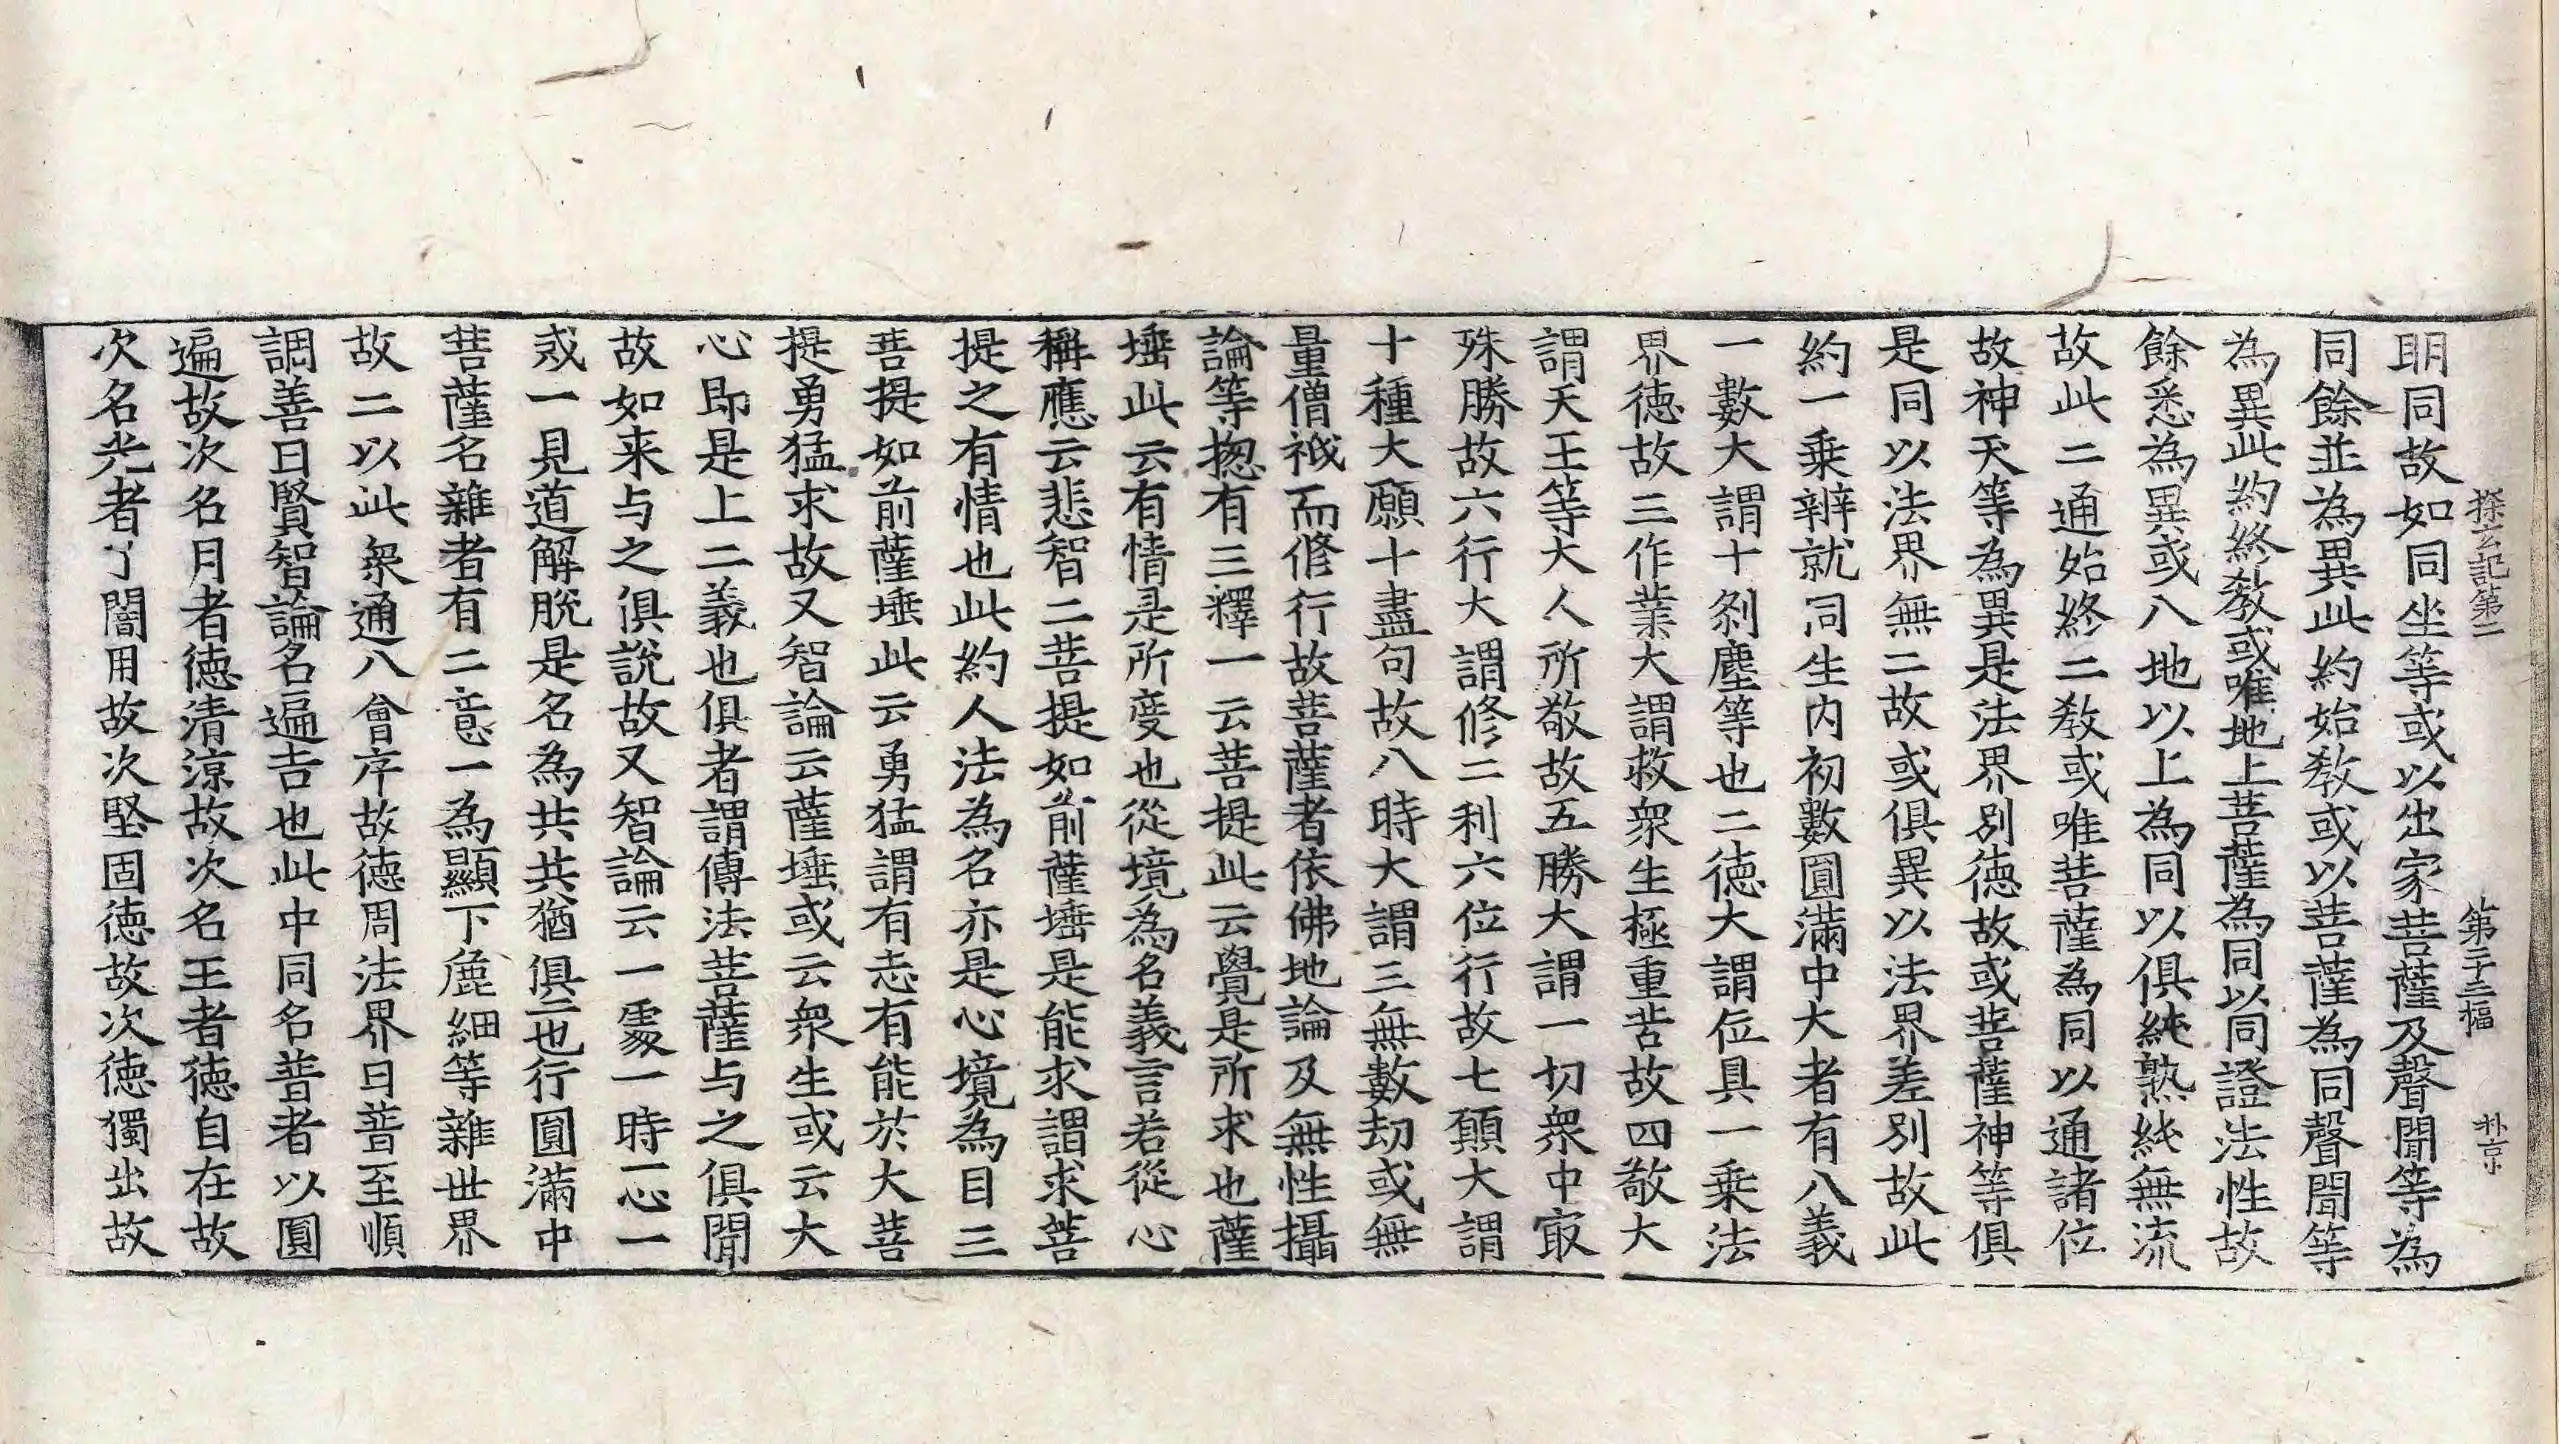 探玄記第二 第二十三幅 朴京
明同故如同坐等或以出家菩薩及聲聞等為
同餘並為異此約始教或以菩薩為同聲聞等
為異此約終教或唯地上菩薩為同以同證法性故
餘悉為異或八地以上為同以俱純熟純無流
故此二通始終二教或唯菩薩為同以通諸位
故神天等為異是法界別德故或菩薩神等俱
是同以法界無二故或俱異以法界差別故此
約一乗辨就同生內初數圓滿中大者有八義
一數大謂十刹塵等也二德大謂位具一乗法
界德故三作業大謂救衆生極重苦故四敬大
謂天王等大人所敬故五勝大謂一切衆中㝡
殊勝故六行大謂修二利六位行故七願大謂
十種大願十盡句故八時大謂三無數劫或無
量僧祇而修行故菩薩者依佛地論及無性攝
論等揔有三釋一云菩提此云覺是所求也薩
埵此云有情是所度也從境為名義言若從心
稱應云悲智二菩提如前薩埵是能求謂求菩
提之有情也此約人法為名亦是心境為目三
菩提如前薩埵此云勇猛謂有志有能於大菩
提勇猛求故又智論云薩埵或云衆生或云大
心即是上二義也俱者謂傳法菩薩与之俱聞
故如来与之俱說故又智論云一處一時一心一
戒一見道解脫是名為共共猶俱也二行圓滿中
菩薩名雜者有二意一為顯下麁細等雜世界
故二以此衆通八會序故德周法界曰普至順
調善曰賢智論名遍吉也此中同名普者以圓
遍故次名月者德清涼故次名王者德自在故
次名光者了闇用故次堅固德故次德獨出故